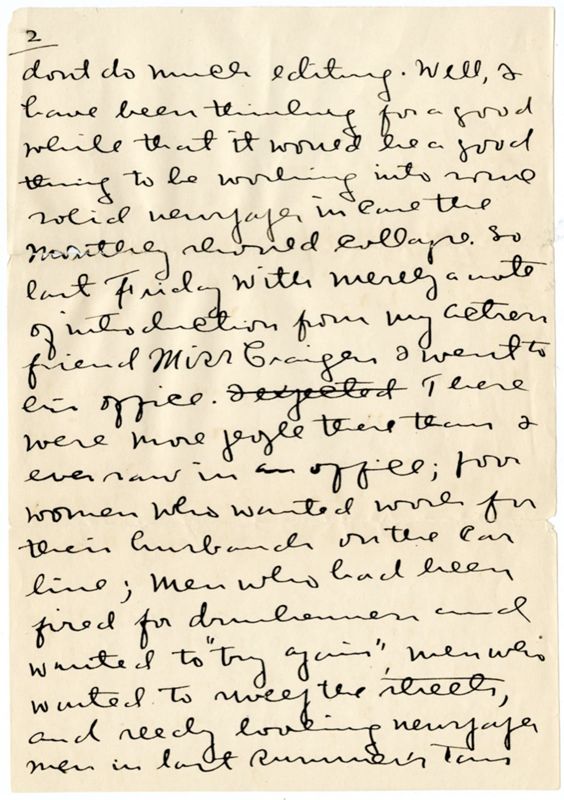 2
dont do much editing. Well, I
have been thinking for a good
while that it would be a good
thing to be working into some
solid newspaper in case the
Monthly should collapse. So
last Friday with merely a note
of introduction from my actress
friend Miss Craigen I went to
his office. I expected There
were more people there than I
ever saw in an office; poor
women who wanted work for
their husbands on the car
line; men who had been
fired for drunkenness and
wanted to "try again", men who
wanted to sweep the streets,
and seedy looking newspaper
men in last summer's Tans